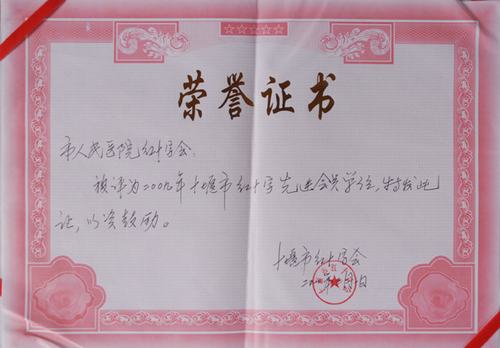 荣誉证书
市人民医院红十字会:
被评为2009年十堰市红十字先进会员单位,特发此
证,以资鼓励。
十堰市红十字会